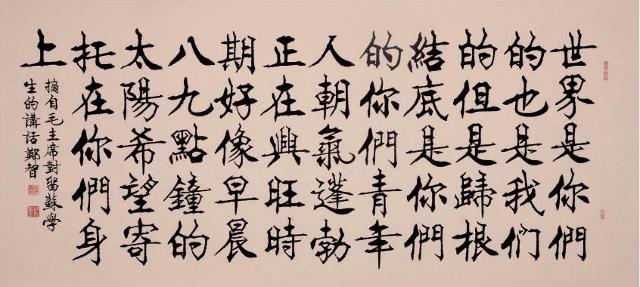 世界是你們
的也是我们
的但是歸根
結底是你們
的你們青年
人朝氣蓬勃
正在興旺時
期好像早晨
八九點鐘的
太陽希望寄
托在你們身
上
摘自毛主席對留蘇學
生的講話鄭智